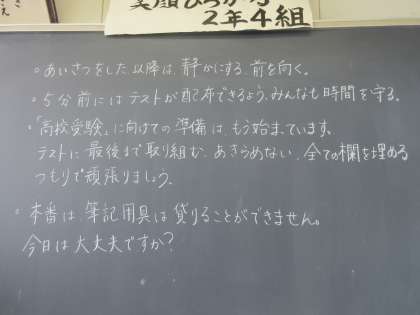 笑顔ひろがる
2年4組
。あいさつをした以降は、静かにする。前を向く。
。5分前にはテストが配布できるよう、みんなも時間を守る。
・「高校受験」に向けての準備は、もう始まっています。
テストに最後まで取り組む、あきらめない、全ての欄を埋める
つもりで頑張りましょう。
。本番は、筆記用具は貸りることができません。
今日は大丈夫ですか?